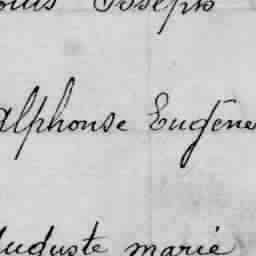 Louis Joseph
Alphonse Eugène
Auguste marie